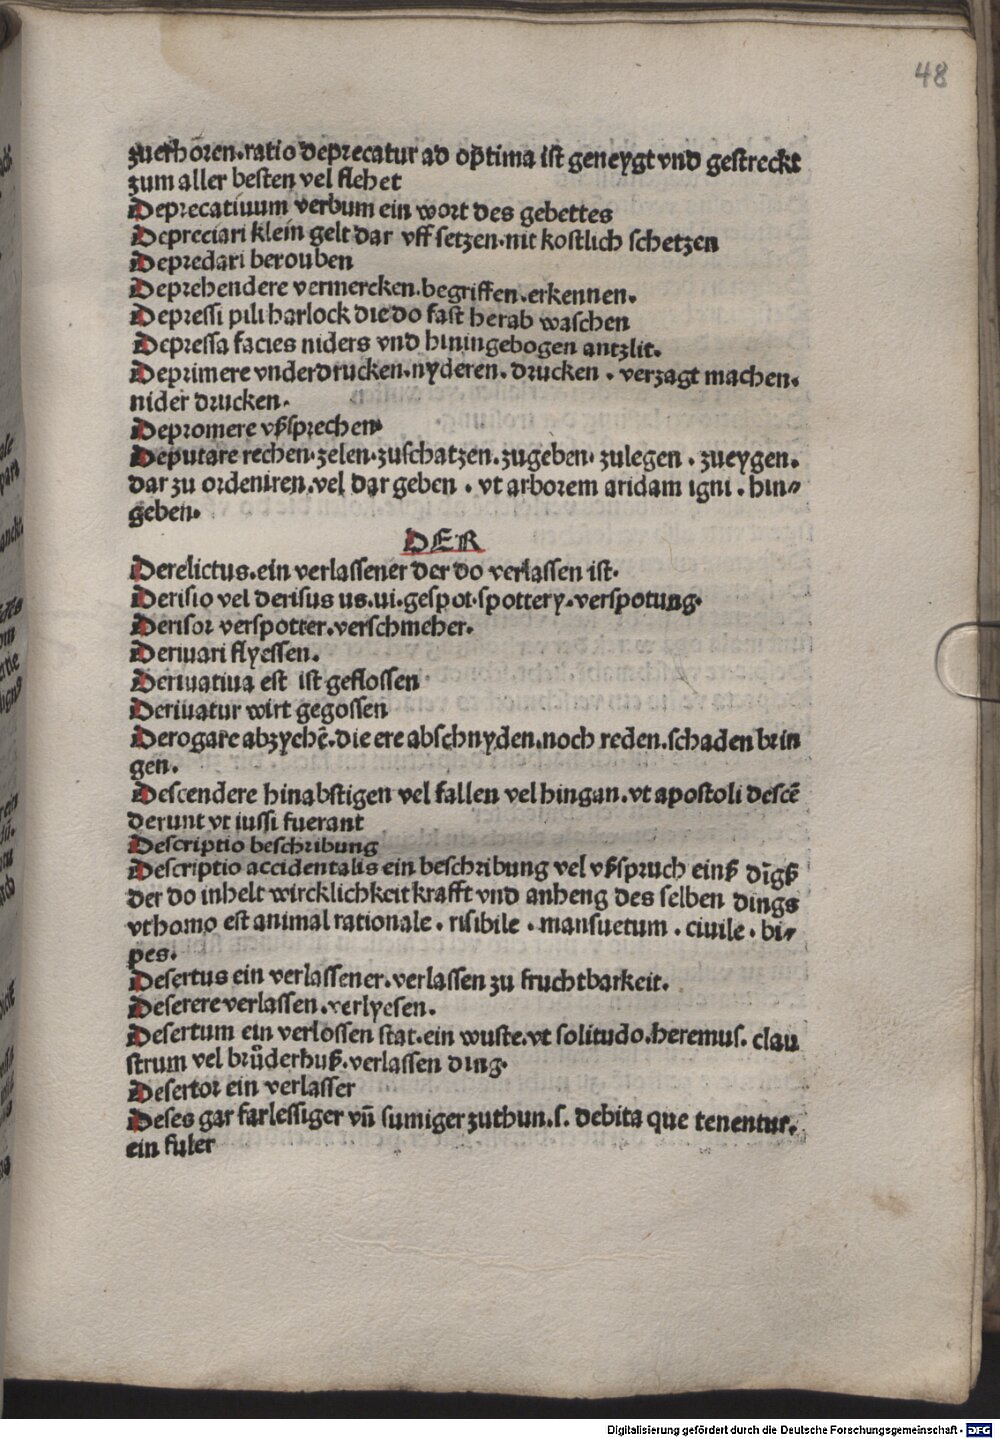 48
zuerhoren.ratio deprecatur ad optima ist geneygt vnd gestreckt
zum aller besten vel flehet
Deprecatiuum verbum ein wort des gebettes
Depreciari klein gelt dar vff setzen.nit kostlich schetzen
Depredari berouben
Deprehendere vermercken.begriffen.erkennen.
Depressi pili harlock die do fast herab waschen
Depressa facies niders vnd hiningebogen antzlit.
Deprimere vnderdrucken.nyderen.drucken.verzagt machen.
nider drucken.
Depromere vßsprechen
Deputare rechen.zelen.zuschatzen.zugeben.zulegen.zueygen.
dar zu ordeniren.vel dar geben.vt arborem aridam igni.hin⸗
geben.
DER
Derelictus.ein verlassener der do verlassen ist.
Derisio vel derisus us.ui.gespot.spottery.verspotung.
Derisor verspotter.verschmeher.
Deriuari flyessen.
Deriuatiua est ist geflossen
Deriuatur wirt gegossen
Derogare abzychē.die ere abschnyden.noch reden.schaden brin
gen.
Descendere hinabstigen vel fallen vel hingan.vt apostoli descē
derunt vt iussi fuerant
Descriptio beschribung
Descriptio accidentalis ein beschribung vel vßspruch einß dīgß
der do inhelt wircklichkeit krafft vnd anheng des selben dings
vt homo est animal rationale.risibile.mansuetum.ciuile.bi⸗
pes.
Desertus ein verlassener.verlassen zu fruchtbarkeit.
Deserere verlassen.verlyesen.
Desertum ein verlossen stat.ein wuste.vt solitudo.heremus.clau
strum vel brůderhuß.verlassen ding.
Desertor ein verlasser
Deses gar farlessiger vñ sumiger zuthun.s.debita que tenentur.
ein fuler
Digitalisierung gefördert durch die Deutsche Forschungsgemeinschaft - DFG